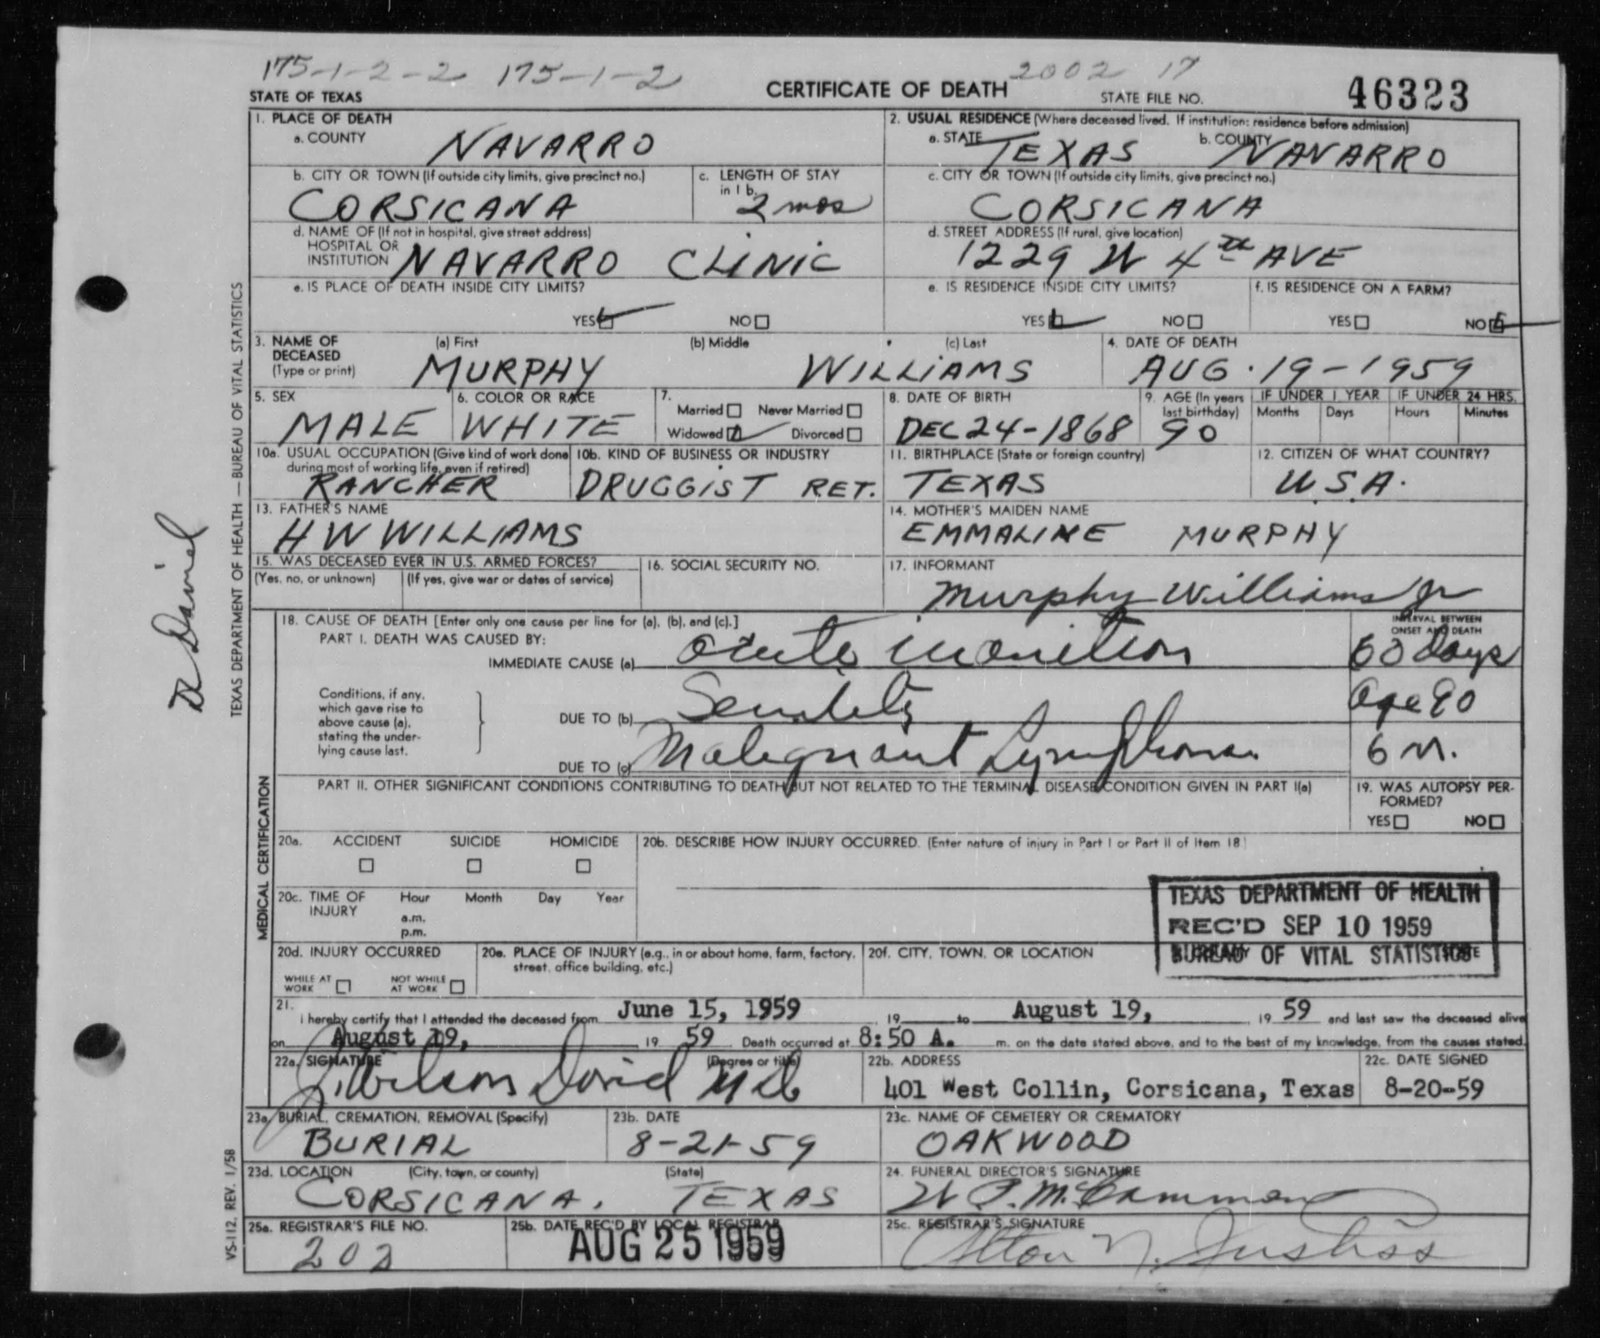 175-1-2-2 175-1-2 2002 17
STATE OF TEXAS CERTIFICATE OF DEATH STATE FILE NO. 46323
1. PLACE OF DEATH
a. COUNTY NAVARRO
2. USUAL RESIDENCE (Where deceased lived. If institution: residence before admission)
a. STATE TEXAS b. COUNTY NAVARRO
b. CITY OR TOWN (If outside city limits, give precinct no.) CORSICANA
c. LENGTH OF STAY in 1 b. 2 mos
c. CITY OR TOWN (If outside city limits, give precinct no.) CORSICANA
d. NAME OF (If not in hospital, give street address)
HOSPITAL OR
INSTITUTION NAVARRO CLINIC
d. STREET ADDRESS (If rural, give location)
1229 W 4th AVE
e. IS PLACE OF DEATH INSIDE CITY LIMITS?
YES NO
e. IS RESIDENCE INSIDE CITY LIMITS?
YES NO
f. IS RESIDENCE ON A FARM?
YES NO
3. NAME OF DECEASED (Type or print)
(a) First (b) Middle (c) Last
MURPHY WILLIAMS
4. DATE OF DEATH
AUG. 19-1959
5. SEX
MALE
6. COLOR OR RACE
WHITE
7.
Married Never Married
Widowed Divorced
8. DATE OF BIRTH
DEC 24-1868
9. AGE (In years last birthday)
90
IF UNDER 1 YEAR
Months Days
IF UNDER 24 HRS.
Hours Minutes
10a. USUAL OCCUPATION (Give kind of work done during most of working life, even if retired)
RANCHER
10b. KIND OF BUSINESS OR INDUSTRY
DRUGGIST RET.
11. BIRTHPLACE (State or foreign country)
TEXAS
12. CITIZEN OF WHAT COUNTRY?
U.S.A.
13. FATHER'S NAME
H W WILLIAMS
14. MOTHER'S MAIDEN NAME
EMMALINE MURPHY
15. WAS DECEASED EVER IN U.S. ARMED FORCES?
(Yes, no, or unknown) (If yes, give war or dates of service)
16. SOCIAL SECURITY NO.
17. INFORMANT
Murphy Williams Jr
18. CAUSE OF DEATH [Enter only one cause per line for (a), (b), and (c).]
INTERVAL BETWEEN
ONSET AND DEATH
PART I. DEATH WAS CAUSED BY:
IMMEDIATE CAUSE (a) acute inanition 60 days
Conditions, if any,
which gave rise to
above cause (a),
stating the under-
lying cause last.
DUE TO (b) Senility age 90
DUE TO (c) Malignant Lymphoma 6 m.
PART II. OTHER SIGNIFICANT CONDITIONS CONTRIBUTING TO DEATH BUT NOT RELATED TO THE TERMINAL DISEASE CONDITION GIVEN IN PART I(a)
19. WAS AUTOPSY PER-
FORMED?
YES NO
20a. ACCIDENT SUICIDE HOMICIDE
20b. DESCRIBE HOW INJURY OCCURRED. (Enter nature of injury in Part I or Part II of Item 18)
20c. TIME OF INJURY
Hour Month Day Year
a.m.
p.m.
TEXAS DEPARTMENT OF HEALTH
REC'D SEP 10 1959
BUREAU OF VITAL STATISTICS
20d. INJURY OCCURRED
WHILE AT WORK NOT WHILE AT WORK
20e. PLACE OF INJURY (e.g., in or about home, farm, factory, street, office building, etc.)
20f. CITY, TOWN, OR LOCATION
21.
I hereby certify that I attended the deceased from June 15, 1959 19 to August 19, 19 59 and last saw the deceased alive
on August 19, 19 59. Death occurred at 8:50 A. m. on the date stated above, and to the best of my knowledge, from the causes stated.
22a. SIGNATURE (Degree or title)
J. Wilson David M D
22b. ADDRESS
401 West Collin, Corsicana, Texas
22c. DATE SIGNED
8-20-59
23a. BURIAL, CREMATION, REMOVAL (Specify)
BURIAL
23b. DATE
8-21-59
23c. NAME OF CEMETERY OR CREMATORY
OAKWOOD
23d. LOCATION (City, town, or county) (State)
CORSICANA, TEXAS
24. FUNERAL DIRECTOR'S SIGNATURE
W P. McCammon
25a. REGISTRAR'S FILE NO.
202
25b. DATE REC'D BY LOCAL REGISTRAR
AUG 25 1959
25c. REGISTRAR'S SIGNATURE
Alton N. Justiss
TEXAS DEPARTMENT OF HEALTH — BUREAU OF VITAL STATISTICS
MEDICAL CERTIFICATION
VS-112, REV. 1/58